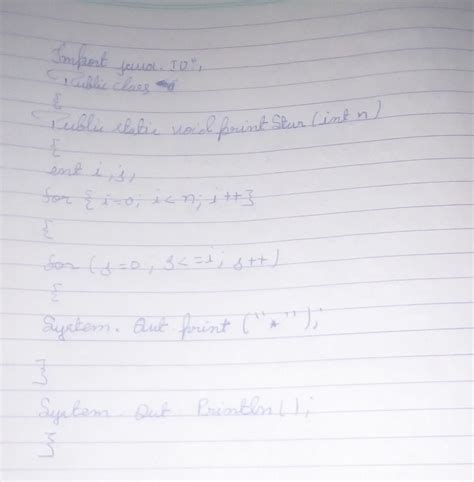 Import java. IO*;
Public class
{
Public static void print Star (int n)
{
int i, j,
for { i=0; i<n; i++}
{
for (j=0, j<=i, j++)
{
System. Out. print ("*");
}
System Out Println();
}